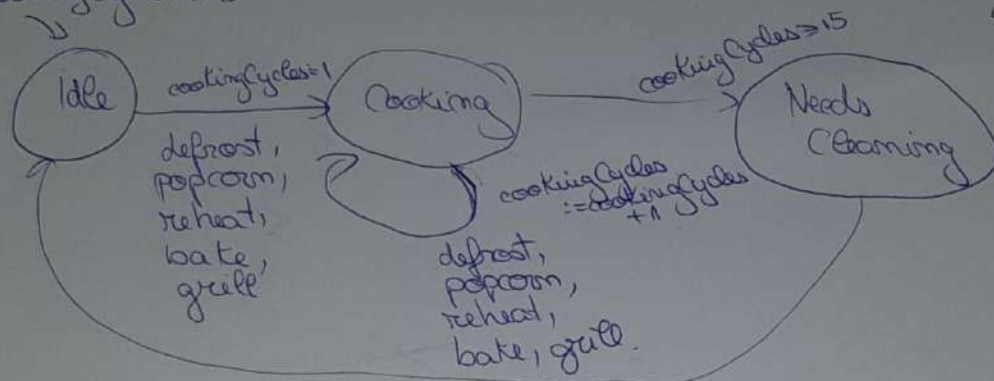 Idle
cookingCycles=1
defrost,
popcorn,
reheat,
bake,
grill
Cooking
cookingCycles
:=cookingCycles
+1
defrost,
popcorn,
reheat,
bake, grill.
cookingCycles≥15
Needs
Cleaning